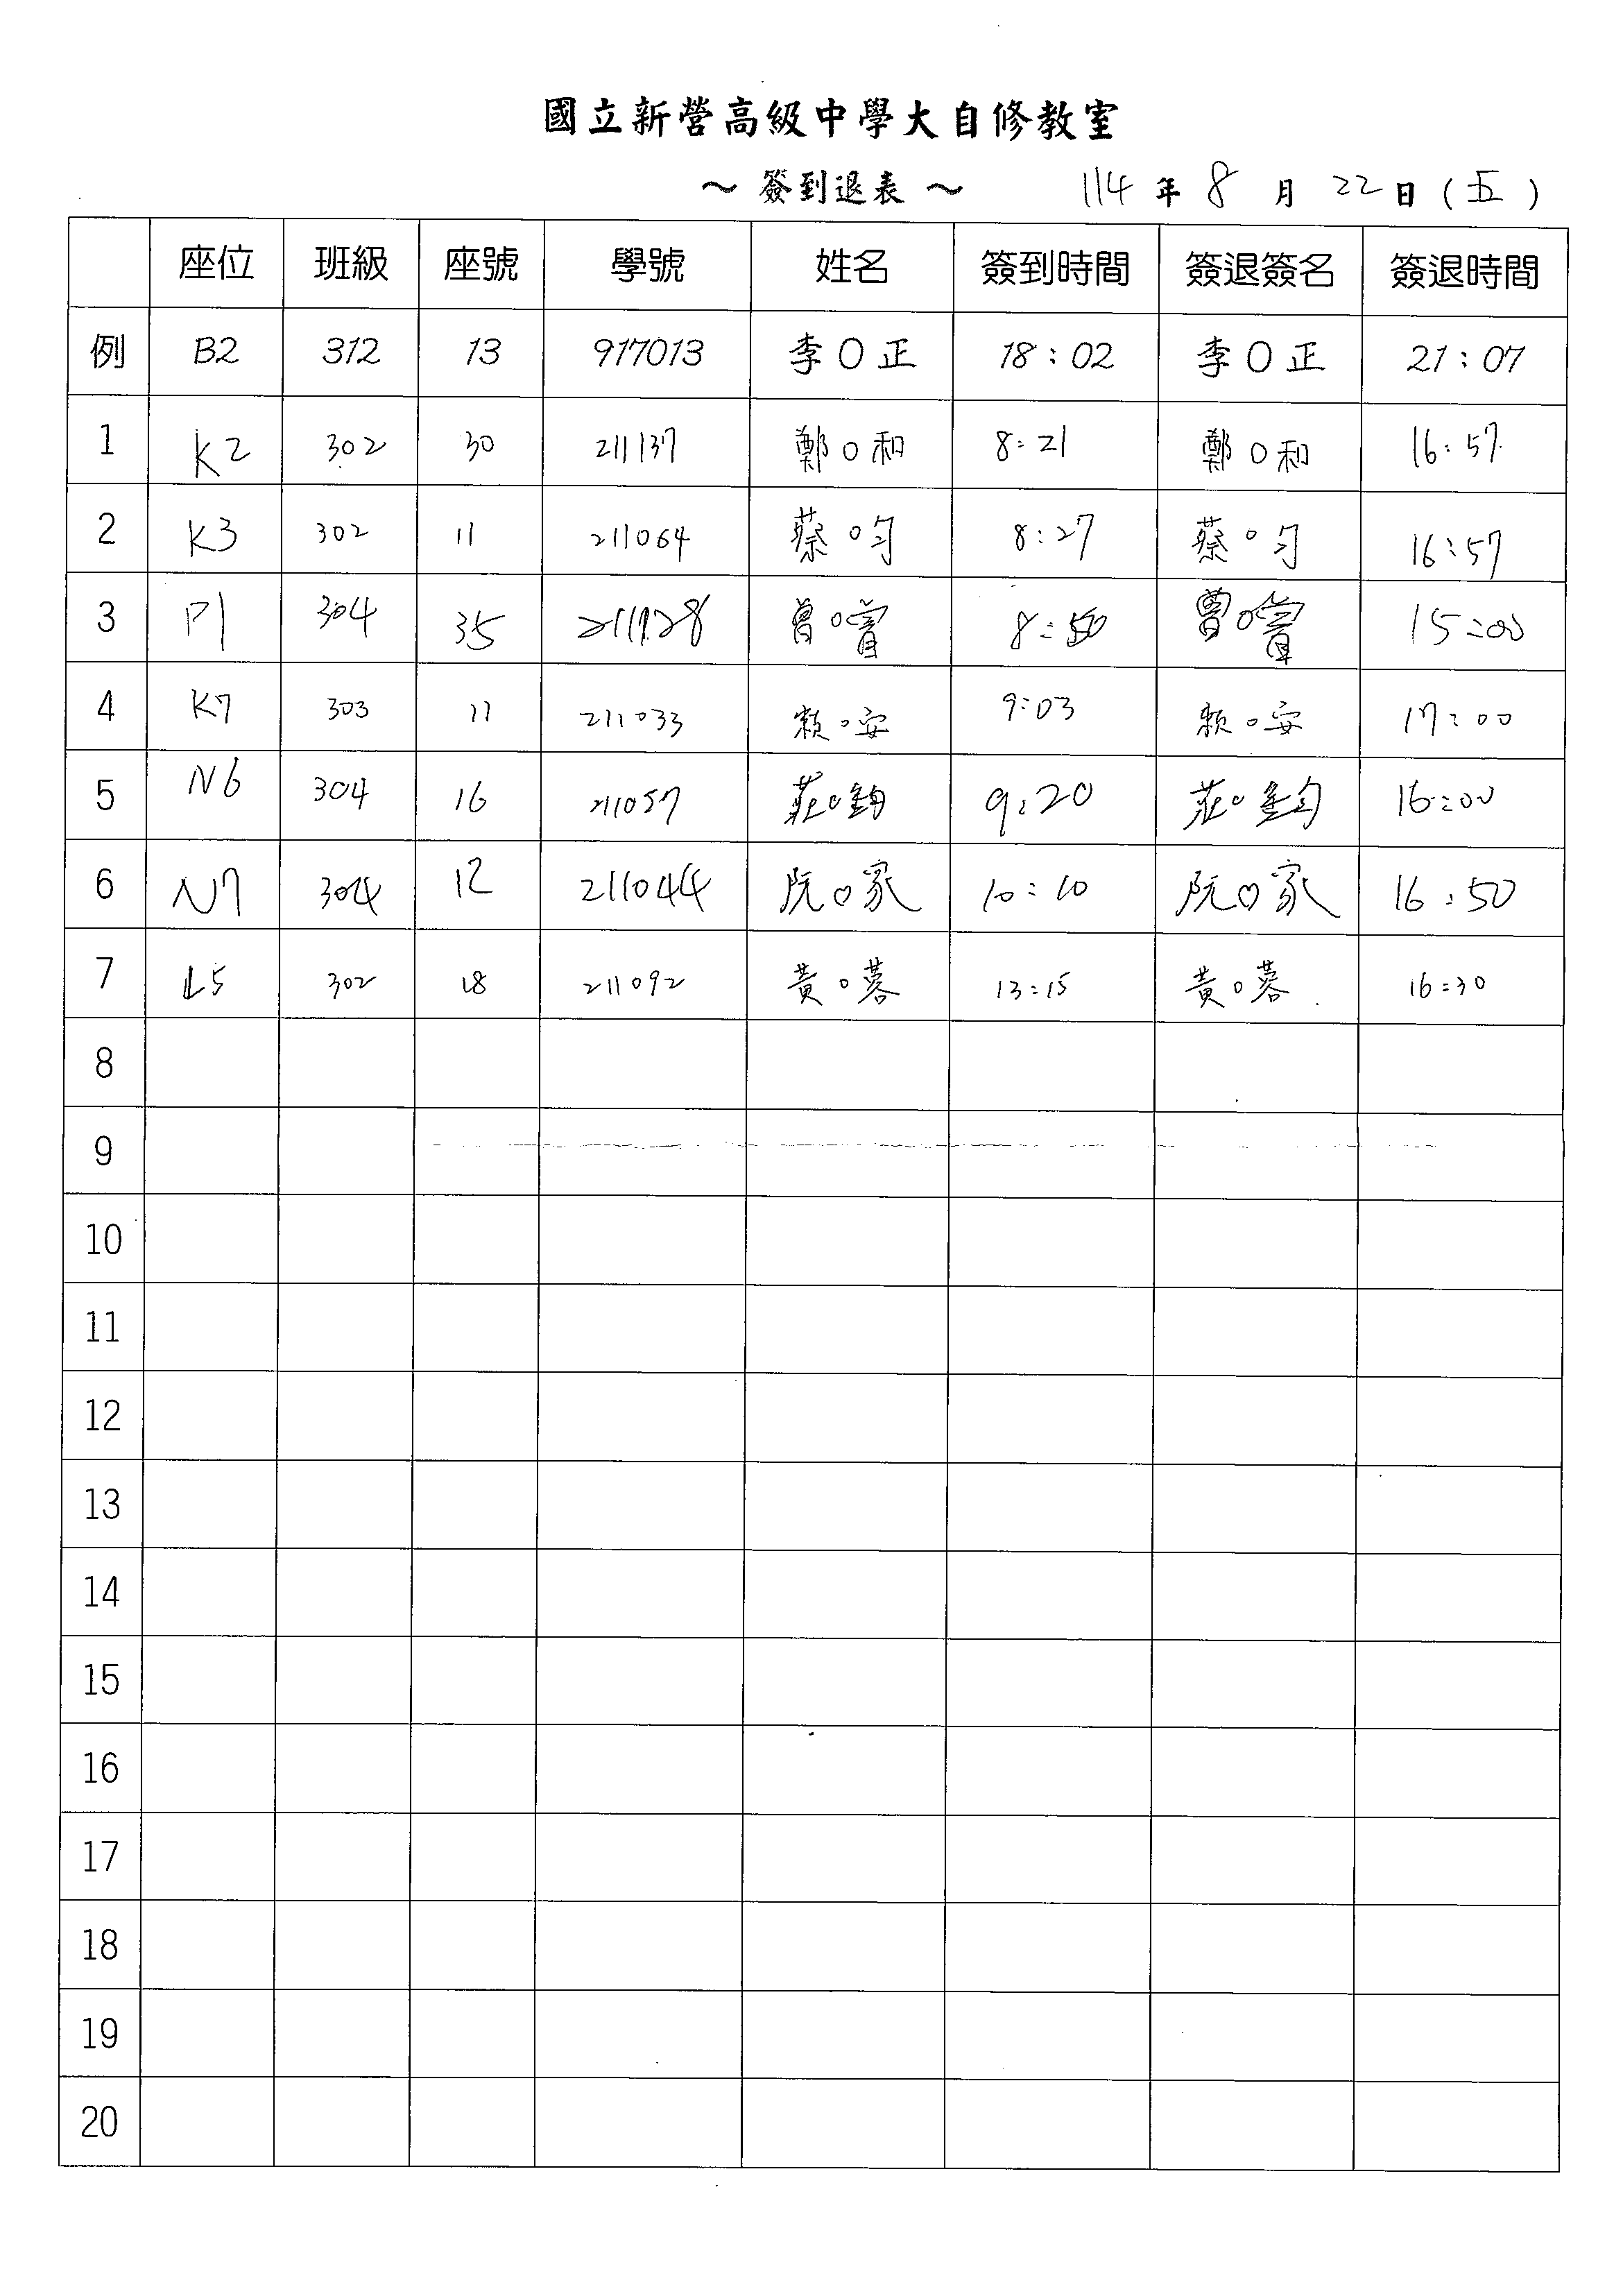 國立新營高級中學大自修教室
～ 簽到退表 ～ 114 年 8 月 22 日 ( 五 )
座位 班級 座號 學號 姓名 簽到時間 簽退簽名 簽退時間
例 B2 312 13 917013 李O正 18:02 李O正 21:07
1 K2 302 30 211137 鄭O和 8:21 鄭O和 16:57
2 K3 302 11 211064 蔡O勻 8:27 蔡O勻 16:57
3 P1 304 35 曾O 8:50 曾O 15:00
4 K7 303 11 211033 賴O安 9:03 賴O安 17:00
5 N6 304 16 211057 莊O鈞 9:20 莊O鈞 16:00
6 N7 304 12 211044 阮O家 10:10 阮O家 16:50
7 L5 302 18 211092 黃O蓉 13:15 黃O蓉 16:30
8
9
10
11
12
13
14
15
16
17
18
19
20